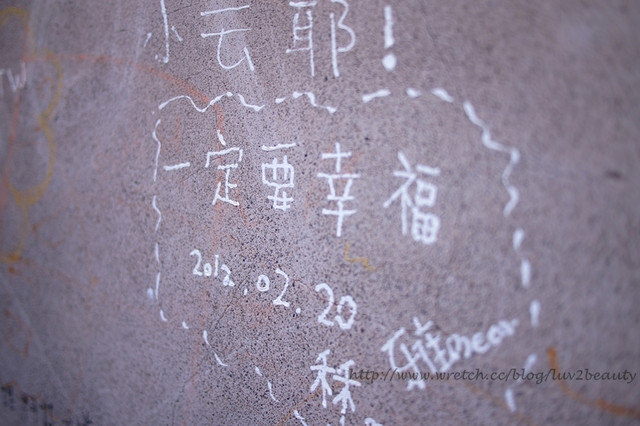 云耶!
一定要幸福
2012.02.20
http://www.wretch.cc/blog/luv2beauty